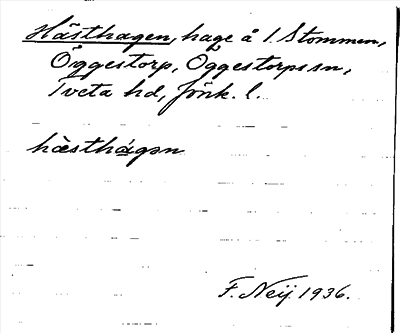 Hästhagen, hage å 1 Stommen,
Öggestorp, Öggestorps sn,
Tveta hd, Jönk. l.
hæsthágən
F. Neij 1936.